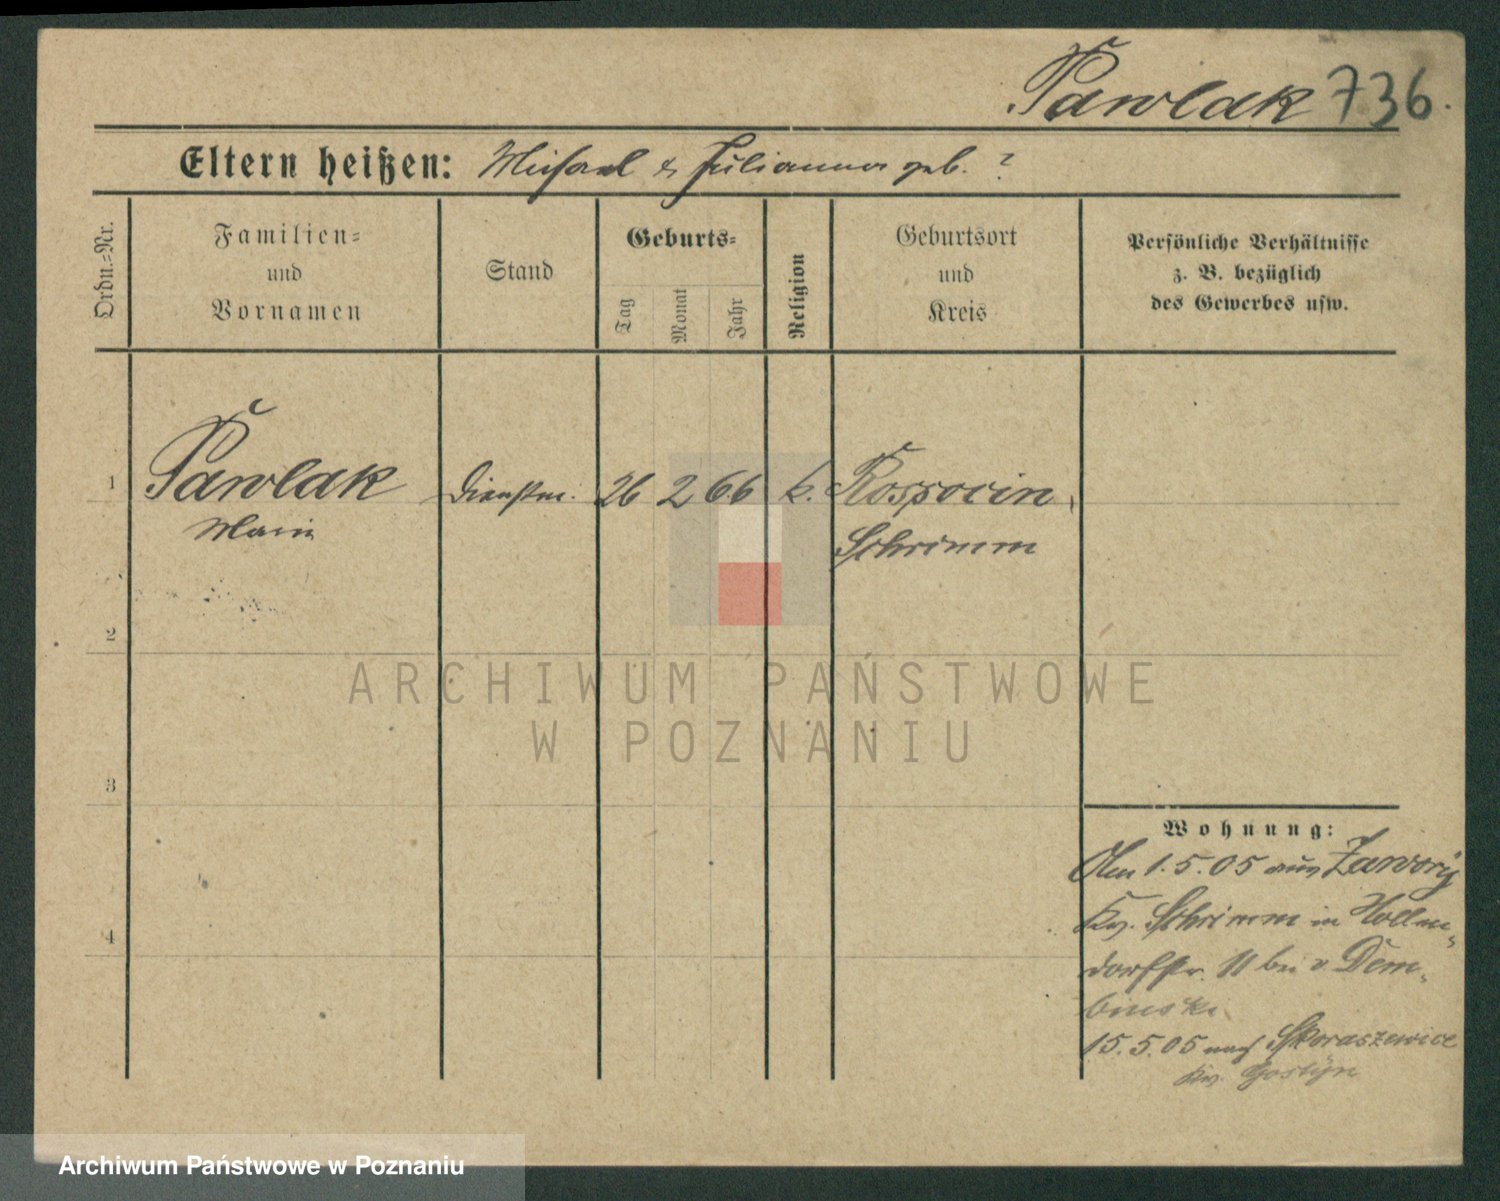 Pawlak 736.
Eltern heißen: Michael & Julianna geb. ?
Ordn.=Nr.
Familien=
und
Vornamen
Stand
Geburts=
Tag
Monat
Jahr
Religion
Geburtsort
und
Kreis
Persönliche Verhältnisse
z. B. bezüglich
des Gewerbes usw.
1
Pawlak
Marie
Dienstm.
26 2 66
k.
Schrimm
2
3
4
Wohnung:
Am 1.5.05 aus Zawory
Kr. Schrimm in Hollen-
dorfstr. 11 bei v. Dem-
binski
15.5.05 nach Skoraszewice
Kr. Gostyn
ARCHIWUM PAŃSTWOWE
W POZNANIU
Archiwum Państwowe w Poznaniu